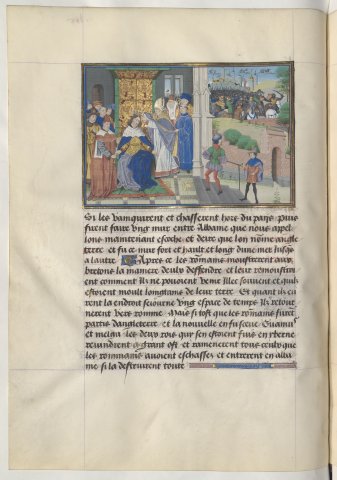 Si les vainquirent et chasserent hors du pays puis
furent faire vng mur entre Albanie que nous appel
lons maintenant escoche et deurs que lon nōme angle
terre et fu ce mur fort et hault et long dune mer iusqs
a lautre Apres ce les rōmains monstrerent aux
bretons la maniere deulz deffendre et leur remonstrer
ent comment Ilz ne pouoient venir illec souuent et quilz
estoient moult longtains de leur terre Et quant ilz eu
rent la endroit seiourne vng espace de temps Ilz retour
nerent vers romme Mais si tost que les rōmains furēt
partis dangleterre et la nouuelle en fu sceue Guanius
et melga les deux rois qui sen estoient fuis en yberne
reuindrent a grant ost et ramenerent tous ceulx que
les rommains auoient eschasses et entrerent en alba
nie si la destruirent toute